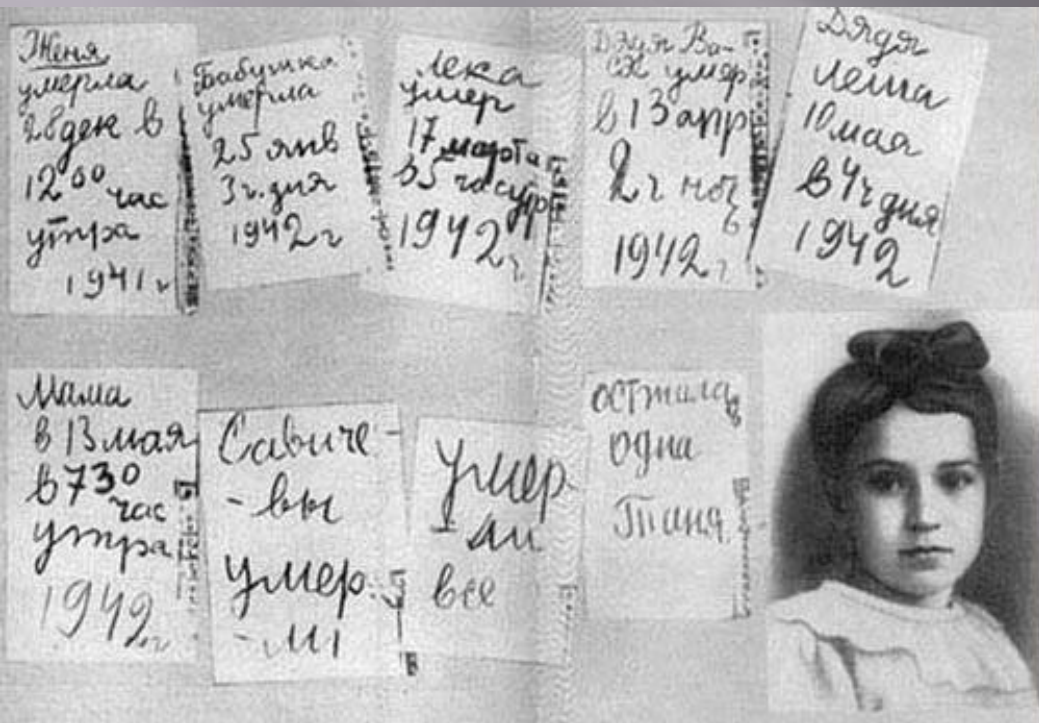 Женя
умерла
28 дек в
12 00 час
утра
1941 г
Бабушка
умерла
25 янв
3 ч. дня
1942 г
Лека
умер
17 марта
в 5 часутр
1942 г
Дядя Ва-
ся умер
в 13 апр
2 ч ноч
1942 г
Дядя
Леша
10 мая
в 4 ч дня
1942
Мама
в 13 мая
в 730
час
утра
1942 г
Савиче-
-вы
умер-
-ли
Умер-
-ли
все
осталась
одна
Таня.